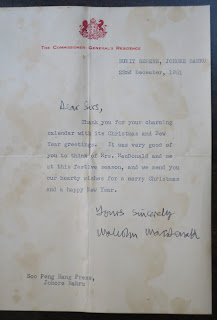 THE COMMISSIONER GENERAL'S RESIDENCE
BUKIT SERENE, JOHORE BAHRU
22nd December, 1951
Dear Sirs,
Thank you for your charming
calendar with its Christmas and New
Year greetings. It was very good of
you to think of Mrs. MacDonald and me
at this festive season, and we send you
our hearty wishes for a merry Christmas
and a happy New Year.
Yours sincerely
Malcolm MacDonald
Hang Press,
Johore Bahru